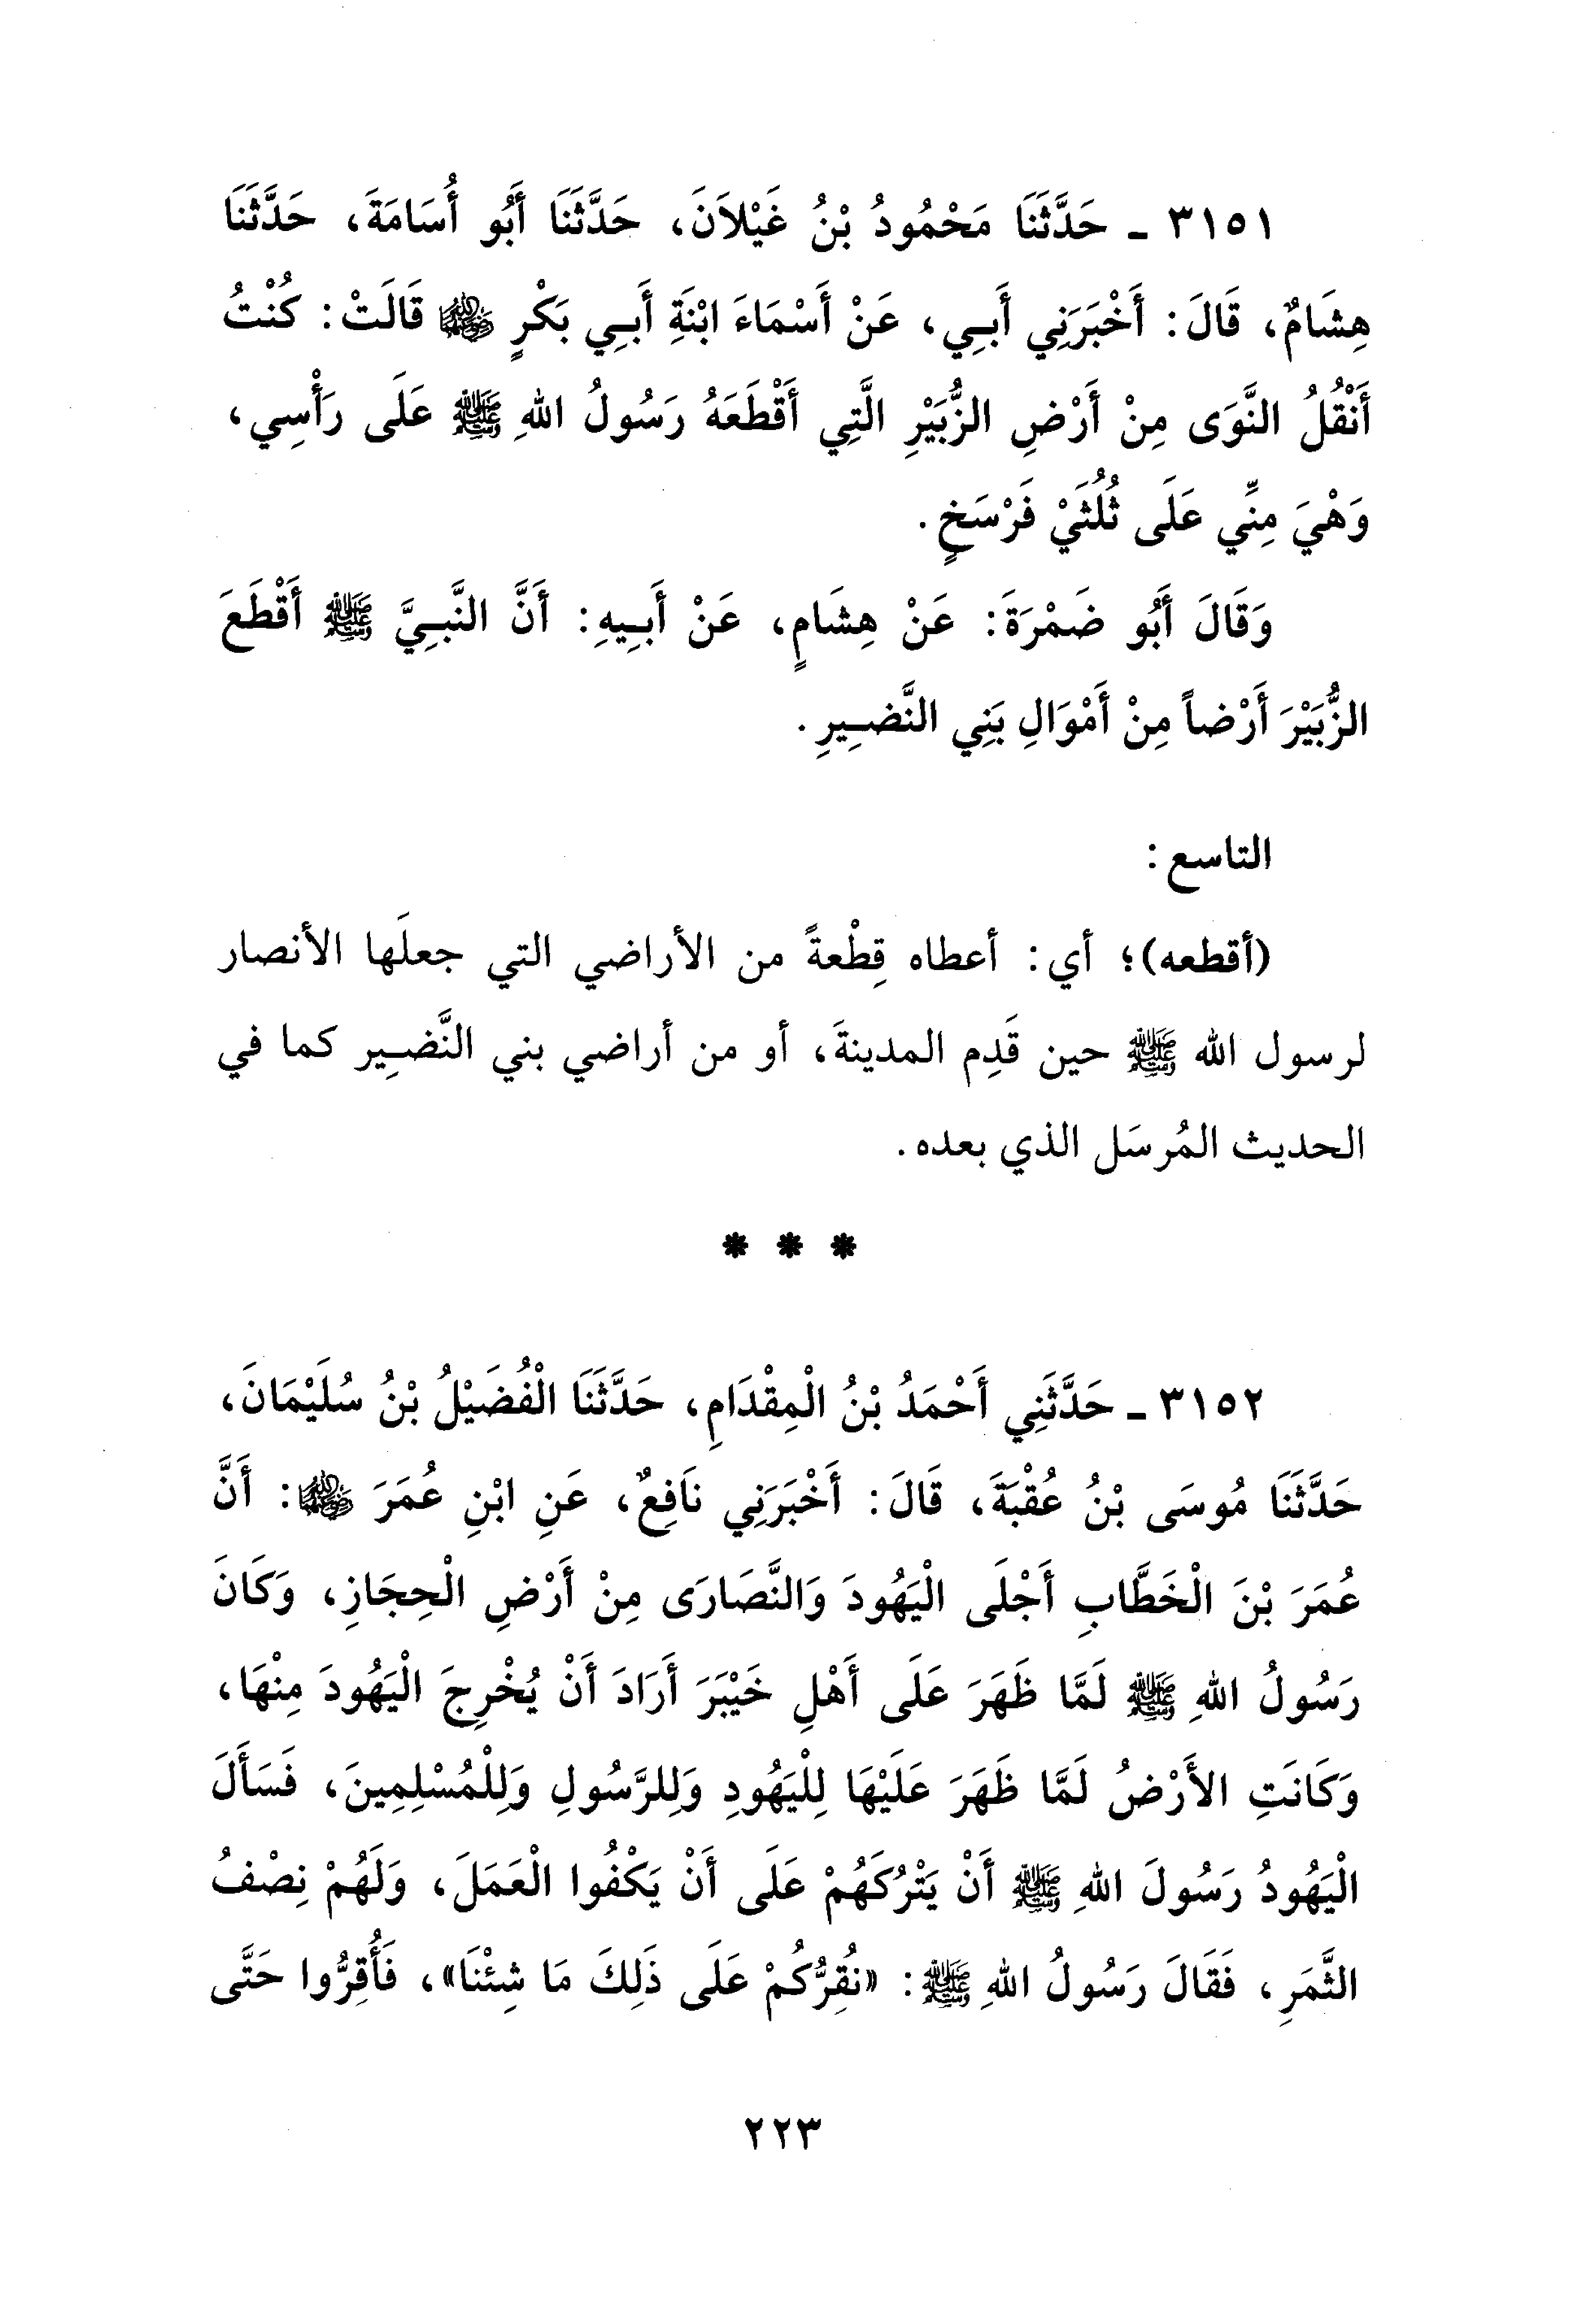 ٣١٥١ ـ حَدَّثَنَا مَحْمُودُ بْنُ غَيْلاَنَ، حَدَّثَنَا أَبُو أُسَامَةَ، حَدَّثَنَا
هِشَامٌ، قَالَ: أَخْبَرَنِي أَبِي، عَنْ أَسْمَاءَ ابْنَةِ أَبِي بَكْرٍ رضي الله عنهما قَالَتْ: كُنْتُ
أَنْقُلُ النَّوَى مِنْ أَرْضِ الزُّبَيْرِ الَّتِي أَقْطَعَهُ رَسُولُ اللهِ ﷺ عَلَى رَأْسِي،
وَهْيَ مِنِّي عَلَى ثُلُثَيْ فَرْسَخٍ.
وَقَالَ أَبُو ضَمْرَةَ: عَنْ هِشَامٍ، عَنْ أَبِيهِ: أَنَّ النَّبِيَّ ﷺ أَقْطَعَ
الزُّبَيْرَ أَرْضاً مِنْ أَمْوَالِ بَنِي النَّضِيرِ.
التاسع:
(أقطعه)؛ أي: أعطاه قِطْعةً من الأراضي التي جعلَها الأنصار
لرسول الله ﷺ حين قَدِم المدينةَ، أو من أراضي بني النَّضِير كما في
الحديث المُرسَل الذي بعده.
* * *
٣١٥٢ ـ حَدَّثَنِي أَحْمَدُ بْنُ الْمِقْدَامِ، حَدَّثَنَا الْفُضَيْلُ بْنُ سُلَيْمَانَ،
حَدَّثَنَا مُوسَى بْنُ عُقْبَةَ، قَالَ: أَخْبَرَنِي نَافِعٌ، عَنِ ابْنِ عُمَرَ رضي الله عنهما: أَنَّ
عُمَرَ بْنَ الْخَطَّابِ أَجْلَى الْيَهُودَ وَالنَّصَارَى مِنْ أَرْضِ الْحِجَازِ، وَكَانَ
رَسُولُ اللهِ ﷺ لَمَّا ظَهَرَ عَلَى أَهْلِ خَيْبَرَ أَرَادَ أَنْ يُخْرِجَ الْيَهُودَ مِنْهَا،
وَكَانَتِ الأَرْضُ لَمَّا ظَهَرَ عَلَيْهَا لِلْيَهُودِ وَلِلرَّسُولِ وَلِلْمُسْلِمِينَ، فَسَأَلَ
الْيَهُودُ رَسُولَ اللهِ ﷺ أَنْ يَتْرُكَهُمْ عَلَى أَنْ يَكْفُوا الْعَمَلَ، وَلَهُمْ نِصْفُ
الثَّمَرِ، فَقَالَ رَسُولُ اللهِ ﷺ: «نُقِرُّكُمْ عَلَى ذَلِكَ مَا شِئْنَا»، فَأُقِرُّوا حَتَّى
٢٢٣